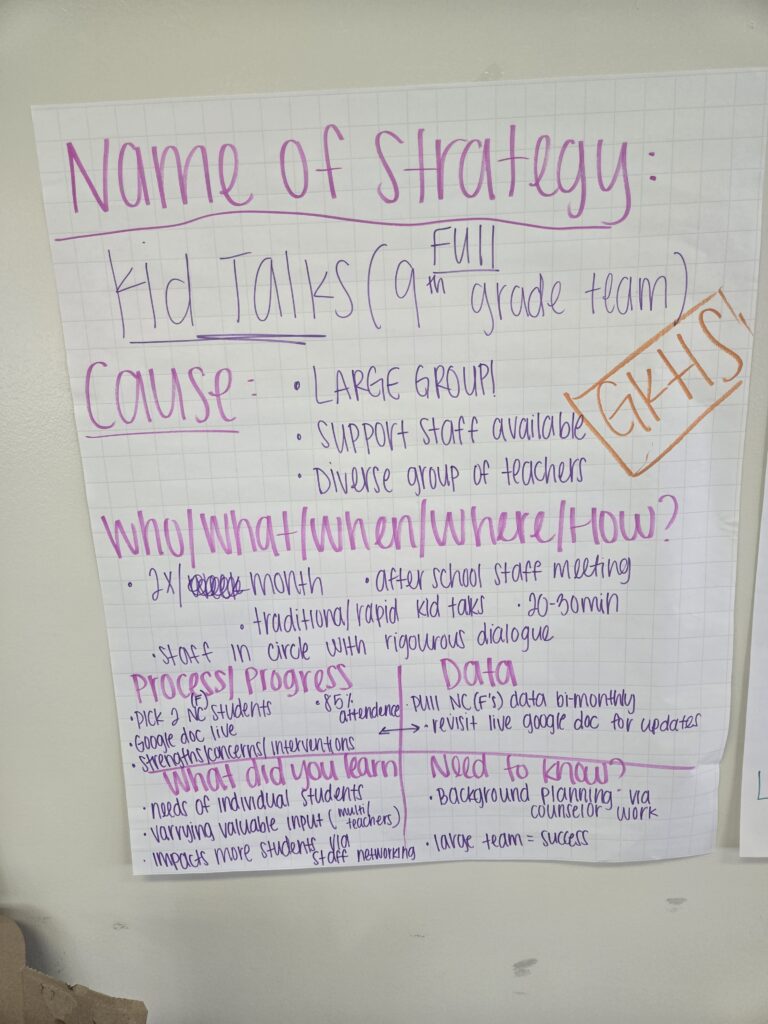 Name of Strategy:
Kid Talks (9th FUll grade team)
GKHS
Cause:
• LARGE GROUP!
• Support Staff available
• Diverse group of teachers
Who/What/When/Where/How?
• 2x/ month • after school staff meeting
• traditional/rapid kid taks • 20-30min
• Staff in circle with rigourous dialogue
Process/Progress
• Pick 2 NC (F) students • 85% attendence
• Google doc live
• Strengths/concerns/interventions
Data
• Pull NC(F's) data bi-monthly
• revisit live google doc for updates
What did you learn
• needs of individual students
• varrying valuable input (multi/teachers)
• impacts more students via staff networking
Need to know?
• Background planning via counselor work
• large team = success